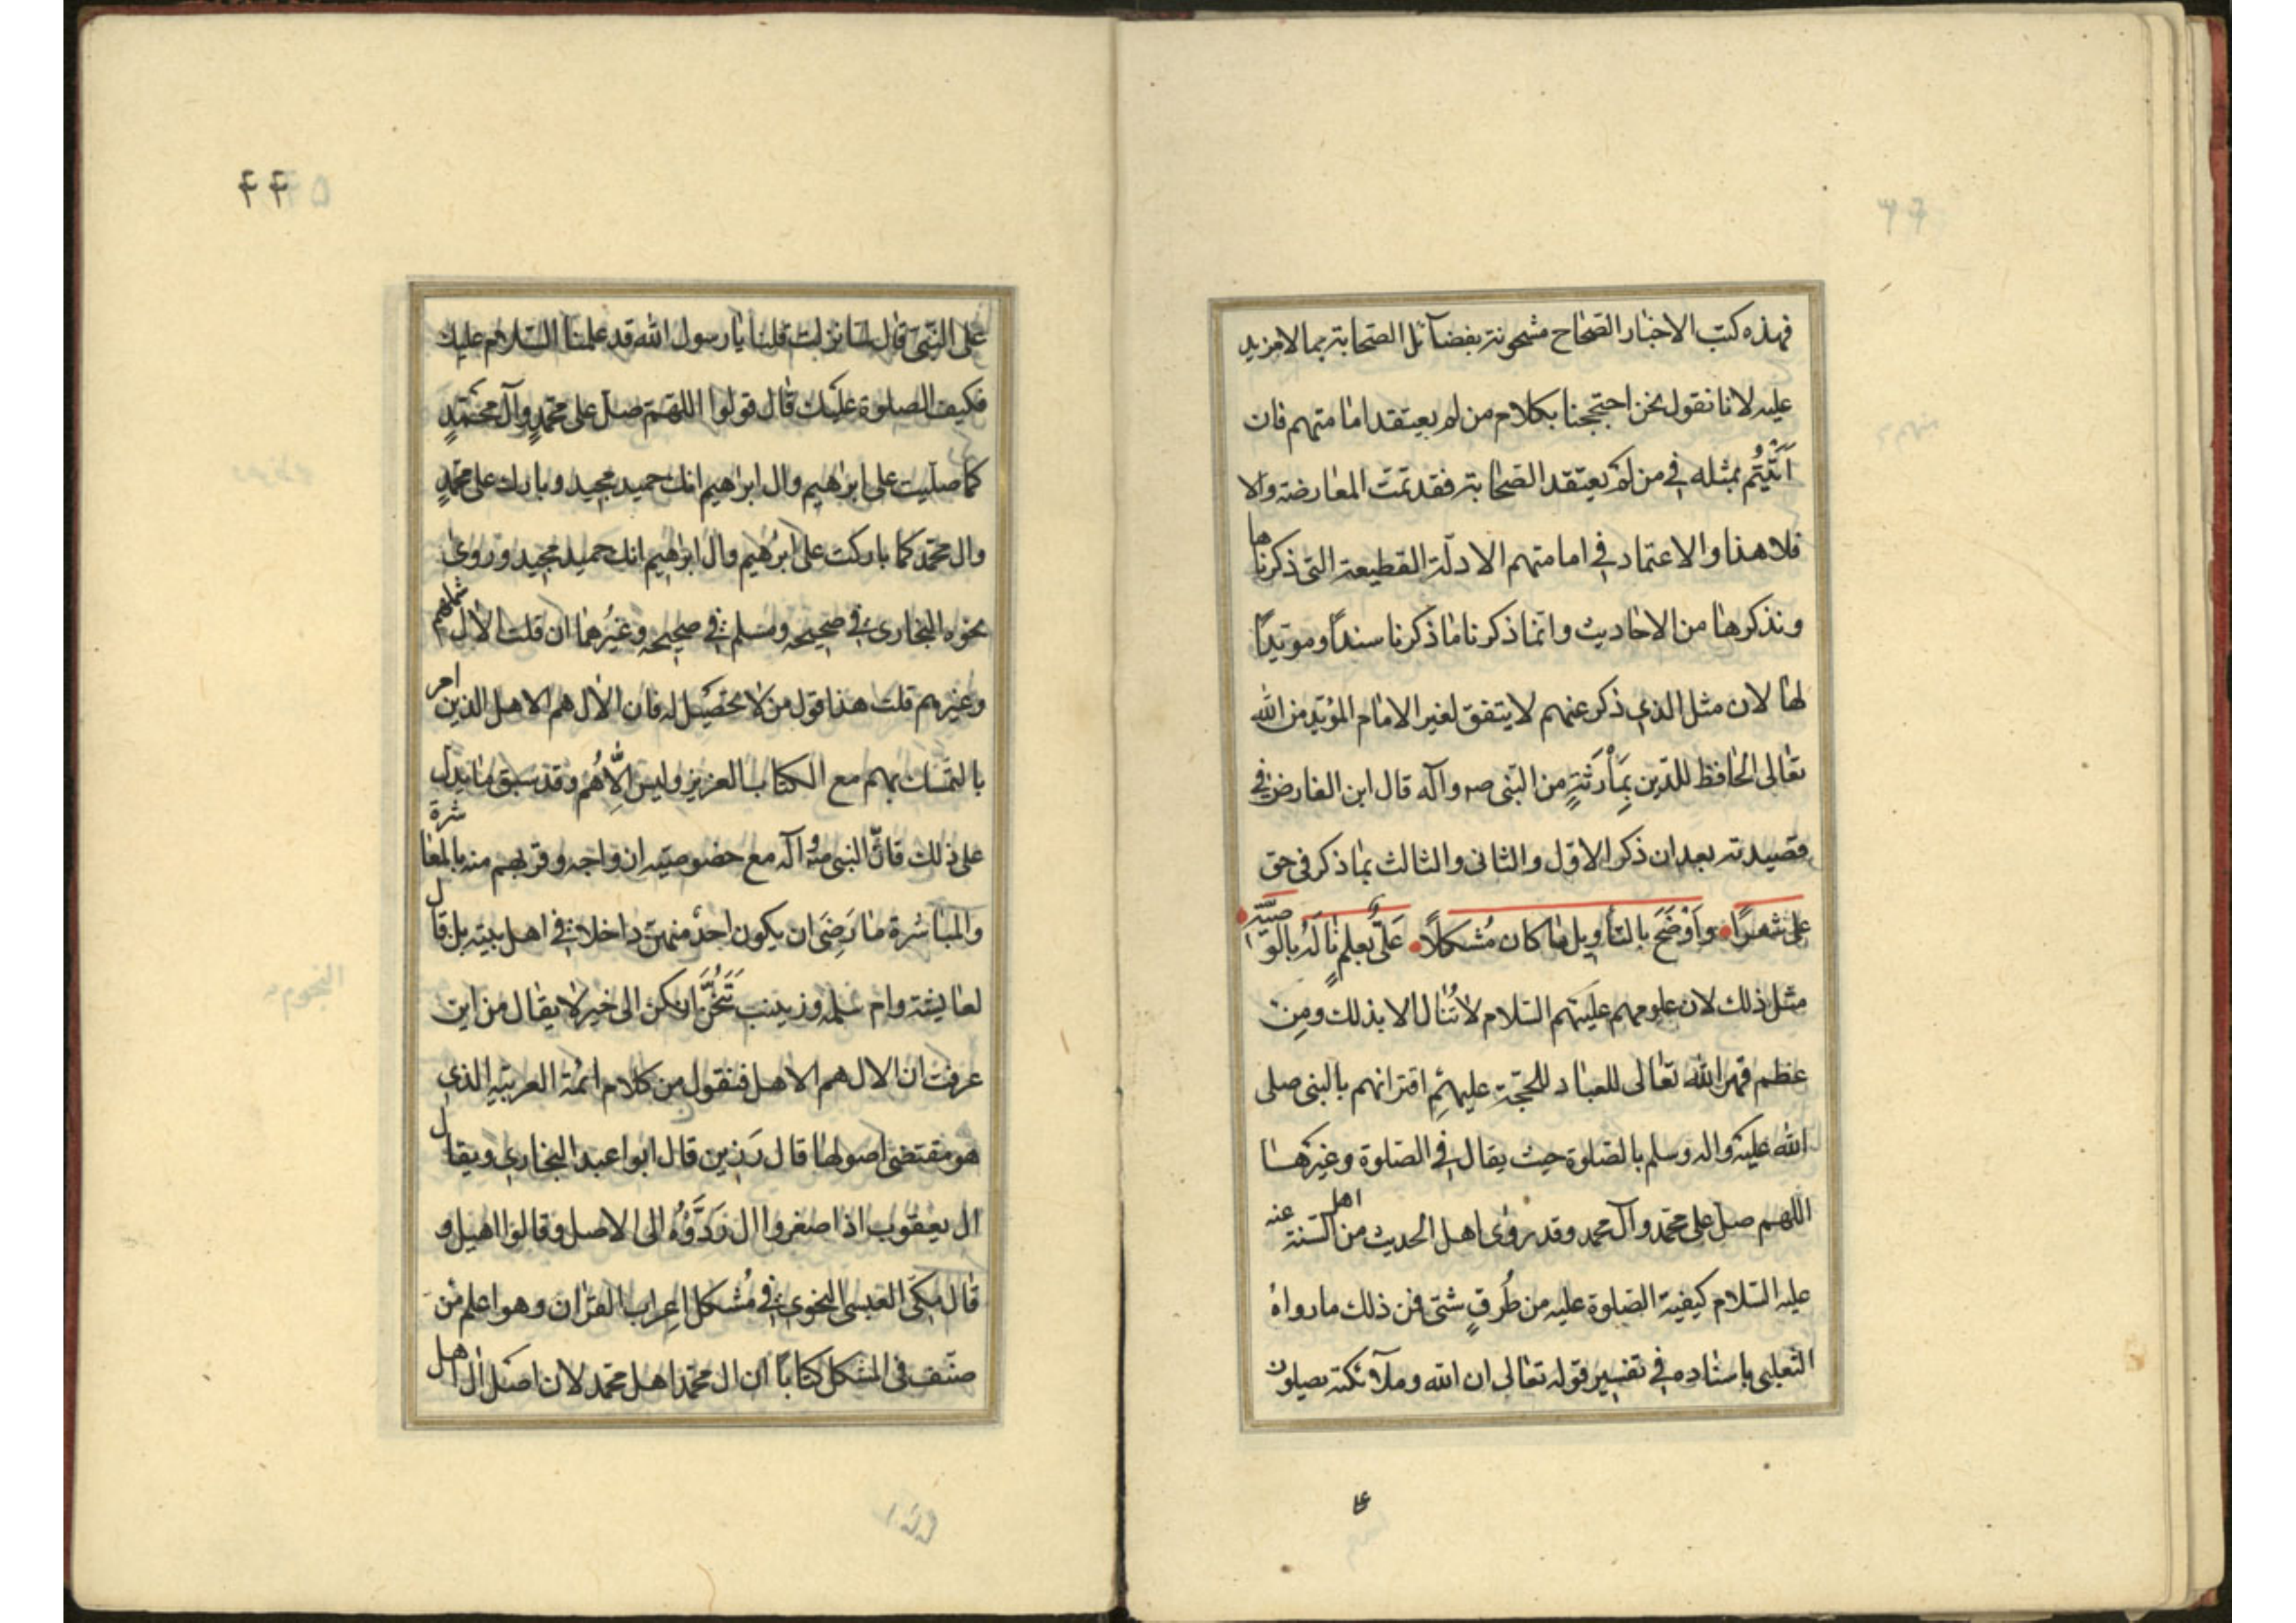 فهذه كتب الاخبار الصحاح مشحونة بفضائل الصحابة بما لا مزيد
عليه لانا نقول نحن احتججنا بكلام من لم يعتقد امامتهم فان
اَتَيْتُم بمثله في من لم يعتقد الصحابة فقد تمت المعارضة والا
فلا هذا والاعتماد في امامتهم الادلة القطيعة التى ذكرناها
ونذكرها من الاحاديث وانما ذكرنا ما ذكرنا سنداً ومويداً
لها لان مثل الذي ذكر عنهم لا يتفق لغير الامام المؤيد من الله
تعالى الحافظ للدين بمأرثة من النبى صه وآله قال ابن الفارض في
قصيدته بعد ان ذكر الاول والثانى والثالث بما ذكر فى حق
على شعراً واَوْضَحَ بالتأويل ما كان مُشكلاً عَلىٌّ بعلمٍ نالَهُ بالوصيّة
مثل ذلك لان علومهم عليهم السلام لا تُنال الا بذلك ومِن
عظم قهر الله تعالى للعباد للحجة عليهم اقترانهم بالنبى صلى
الله عليه واله وسلم بالصلوة حيث يقال في الصلوة وغيرها
اللهم صل على محمد وآل محمد وقد روى اهل الحديث من اهل السنة عنه
عليه السلام كيفية الصلوة عليه من طُرقٍ شتى فمن ذلك ما رواه
الثعلبى باسناده في تفسير قوله تعالى ان الله وملآئكته يصلون
على
۴۴
على النبى قال لما نزلت قلنا يا رسول الله قد علمنا السلام عليك
فكيف الصلوة عليك قال قولوا اللهم صل على محمدٍ وآل محمدٍ
كما صليت على ابرٰهيم وال ابرٰهيم انك حميد مجيد وبارك على محمدٍ
وال محمد كما باركت على ابرٰهيم وال ابرٰهيم انك حميد مجيد وروى
نحوه البخارى في صحيحه ومسلم في صحيحه وغيرُهما ان قلت الآل
وغيرهم قلت هذا قول من لا تحصيل له فان الآل هم الاهل الذين امر
بالتمسك بهم مع الكتاب العزيز وليس اِلاَّهُم وقد سبق ما يدل
على ذلك فانّ النبى صه وآله مع خصوصية ازواجه وقربهم منه بالمعاشرة
والمباشرة ما رَضِىَ ان يكون احدٌ منهن داخلا في اهل بيته بل قال
لعايشة وام سلمه وزينب تَنَحَّ انكن الى خير لا يقال من اين
عرفت ان الال هم الاهل فنقول من كلام ائمة العربية الذي
هو مقتضى اصولها قال رَزين قال ابوا عبد البخاري ويقال
ال يعقوب اذا صغروا ال رَدَّوُه الى الاصل وقالوا اهيل و
قال مكى القيسى النحوى في مُشكل اعراب القرٰان وهو اعلم من
صنف فى المشكل كتاباً ان ال محمد اهل محمد لان اصل ال اهل